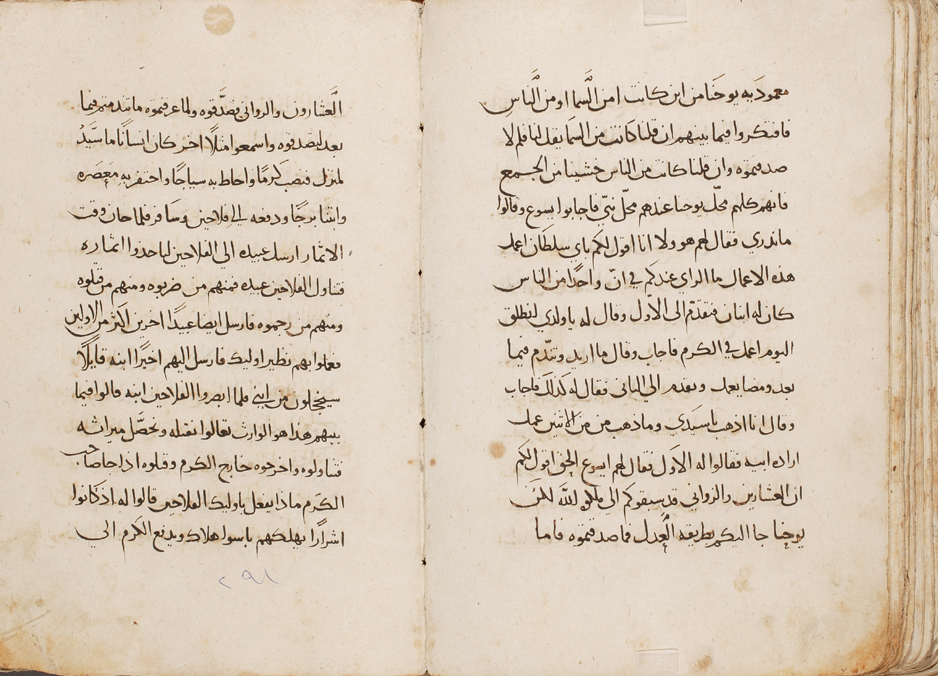 معموديه يوحنا من اين كانت امن السما او من الناس
فافتكروا فيما بينهم ان قلنا كانت من السما يقل لنا فلم لا
صدقتموه وان قلنا كانت من الناس خشينا من الجمع
فانهم كلهم محل يوحنا عندهم محل نبي فاجابوا يسوع وقالوا
ماندري فقال لهم هو ولا انا اقول لكم باي سلطان اعمل
هذه الاعمال ما الراي عندكم في ان واحدا من الناس
كان له ابنان فتقدم الى الاول وقال له ياولدي انطلق
اليوم اعمل في الكرم فاجاب وقال ما اريد وتندم فيما
بعد ومضا يعمل وتقدم الي الثاني فقال له كذلك فاجاب
وقال انا اذهب ياسيدي وماذهب من من الاثنين عمل
اراده ابيه فقالوا له الاول فقال لهم ايسوع الحق اقول لكم
ان العشارين والزواني قد سبقوكم الي ملكوت الله لان
يوحنا جا اليكم بطريقه العدل فما صدقتموه فاما
العشارون والزواني فصدقوه ولما عرفتموه ماتندمتم فيما
بعد لتصدقوه واسمعوا مثلا اخر كان انسانا ما سيد
لمنزل فنصب كرما واحاط به سياجا واحتفر به معصره
وابتنا برجا ودفعه الي فلاحين وسافر فلما حان وقت
الاثمار ارسل عبيده الي الفلاحين لياخذوا اثماره
فتناول الفلاحين عبيده فمنهم من ضربوه ومنهم من قتلوه
ومنهم من رجموه فارسل ايضا عبيدا اخرين اكثر من الاولين
فعملوا بهم نظير اوليك فارسل اليهم اخيرا ابنه قايلا
سيخجلون من ابني فلما ابصروا الفلاحين ابنه قالوا فيما
بينهم هذا هو الوارث تعالوا نقتله ونحصل ميراثه
فتناولوه واخرجوه خارج الكرم وقتلوه اذا جا صاحب
الكرم ماذا يفعل باوليك الفلاحين قالوا له اذ كانوا
اشرارا يهلكهم باسوا هلاك ويدفع الكرم الي
٢٩١